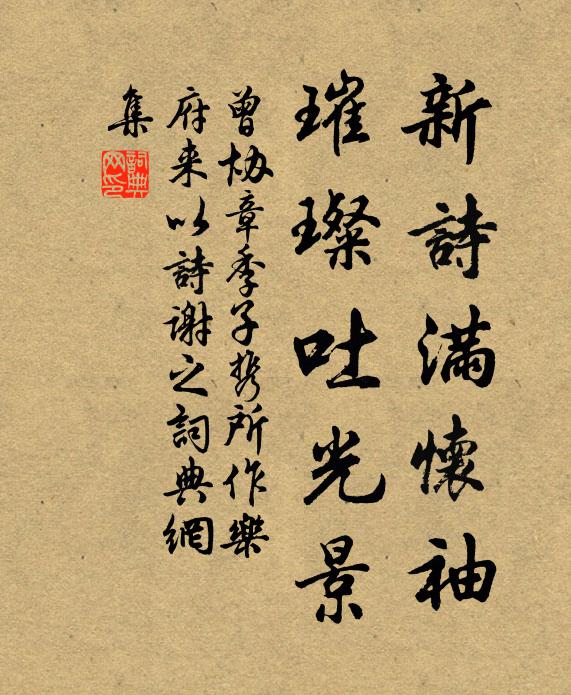 新詩滿懷袖
璀璨吐光景
曾協章季子携所作樂
府来以詩謝之詞典網
集
詞典网印